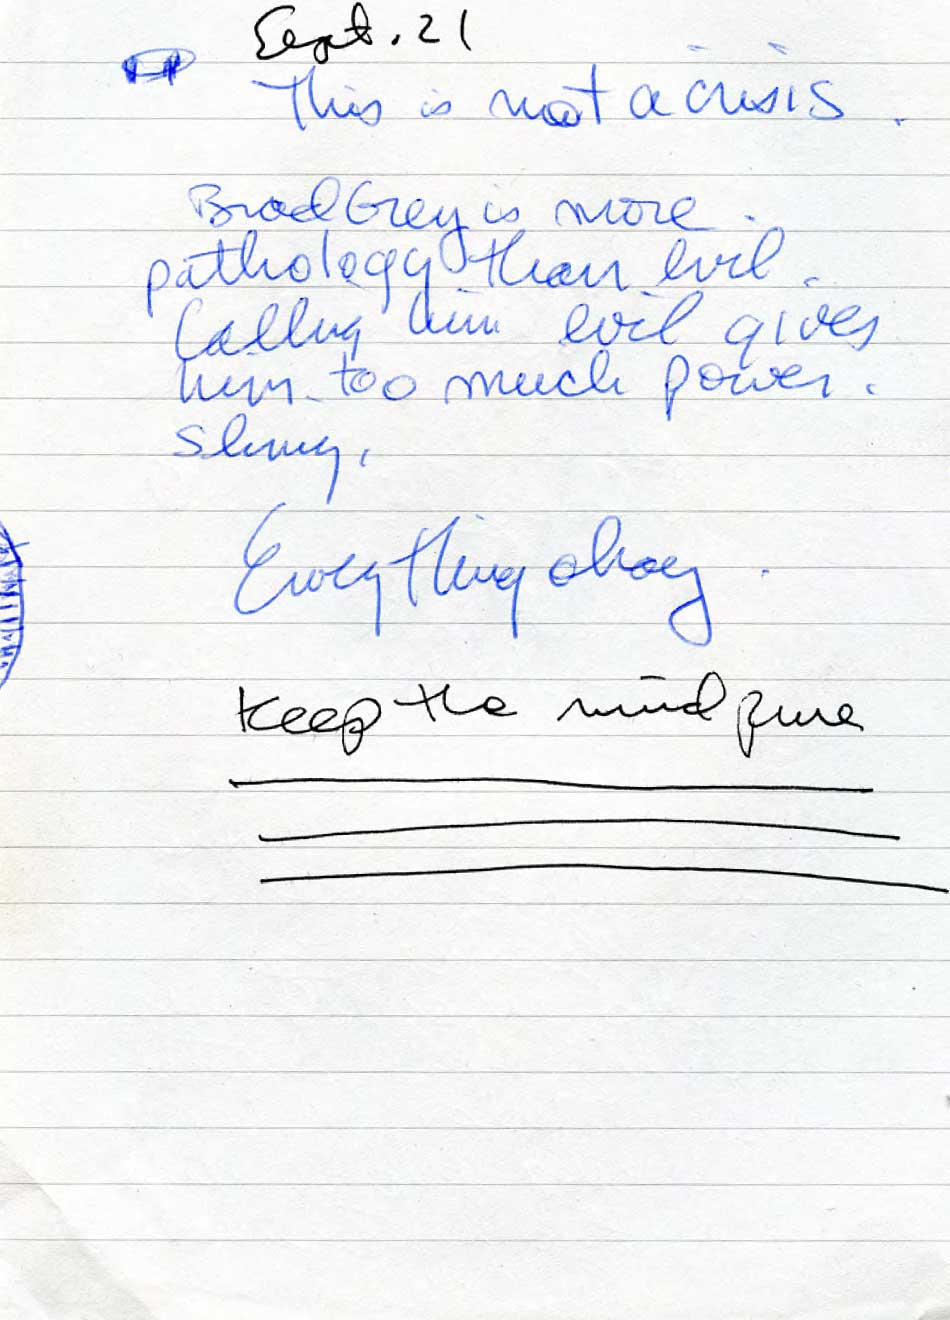 Sept. 21
This is not a crisis.
Brad Grey is more
pathology than evil.
Calling him evil gives
him too much power.
Slimy.
Everything okay.
Keep the mind pure